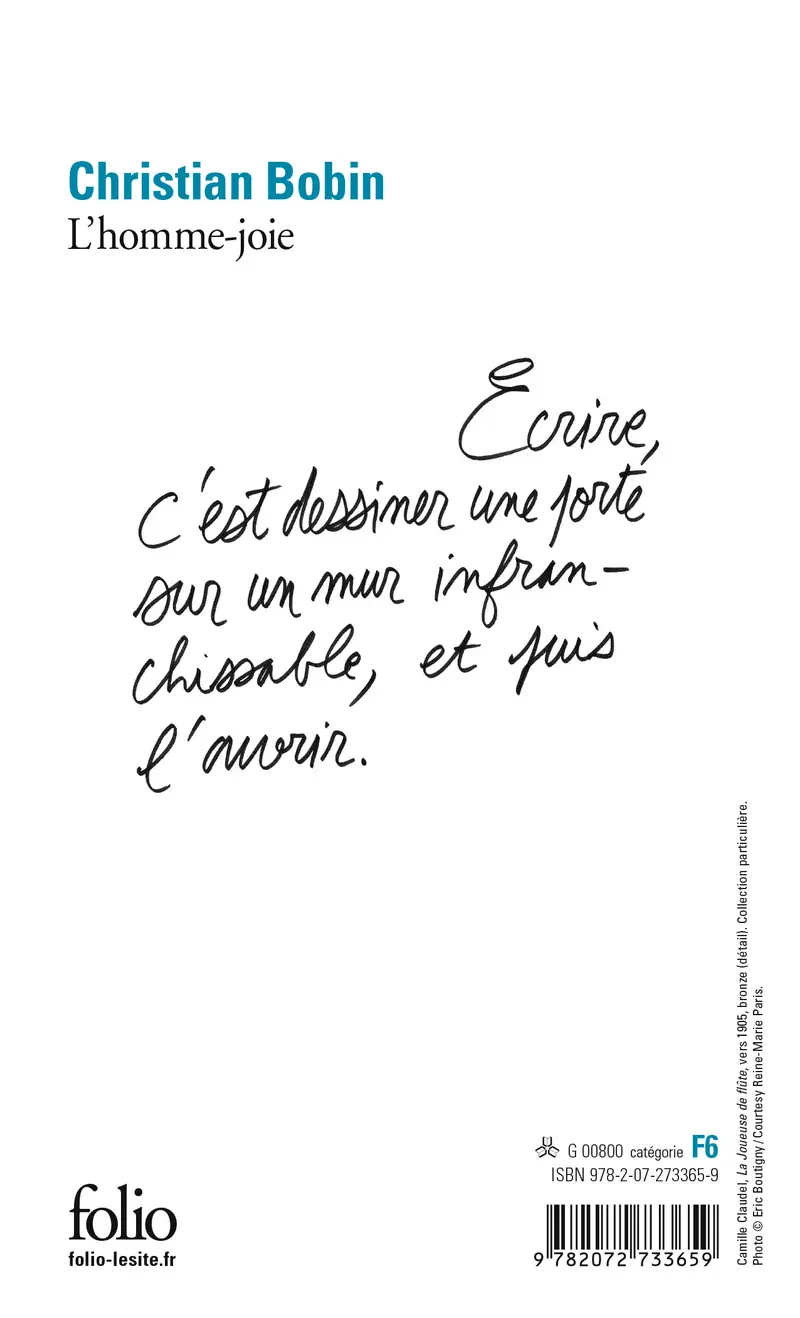 Christian Bobin
L'homme-joie
Écrire,
c'est dessiner une porte
sur un mur infran-
chissable, et puis
l'ouvrir.
Camille Claudel, La Joueuse de flûte, vers 1905, bronze (détail). Collection particulière.
Photo © Eric Boutigny / Courtesy Reine-Marie Paris.
G 00800 catégorie F6
ISBN 978-2-07-273365-9
9 782072 733659
folio
folio-lesite.fr